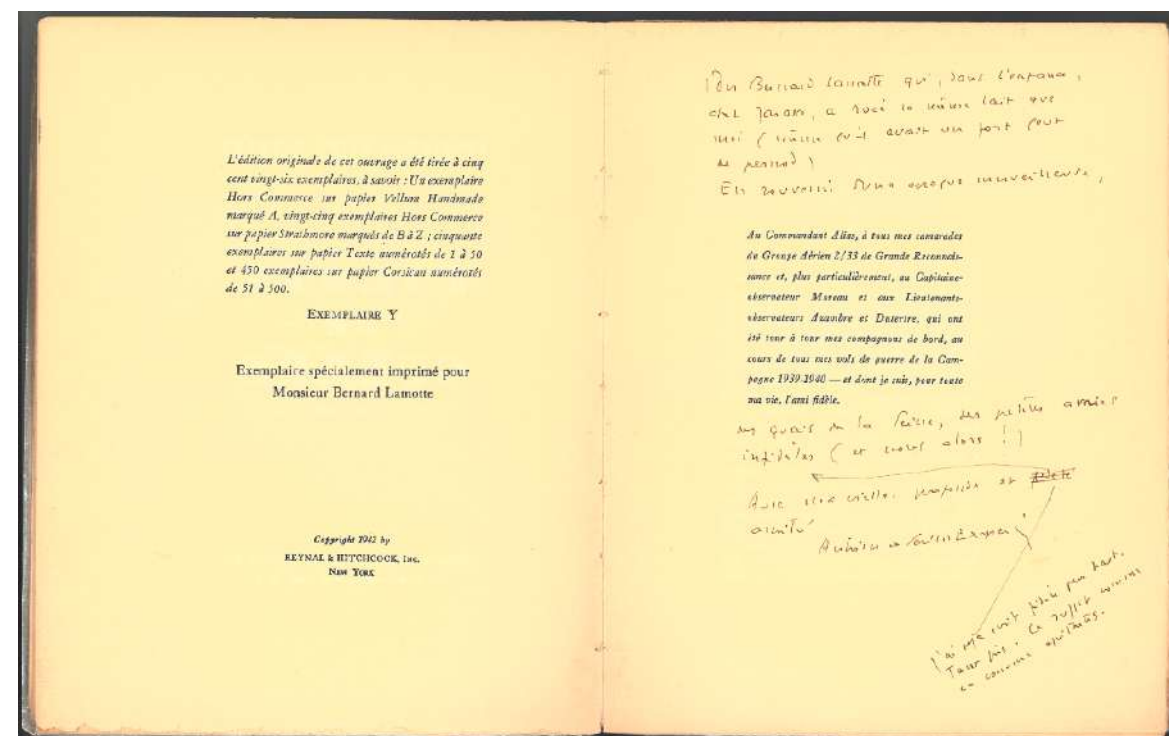 L'édition originale de cet ouvrage a été tirée à cinq
cent vingt-six exemplaires, à savoir : Un exemplaire
Hors Commerce sur papier Vellum Handmade
marqué A, vingt-cinq exemplaires Hors Commerce
sur papier Strathmore marqués de B à Z ; cinquante
exemplaires sur papier Texte numérotés de 1 à 50
et 450 exemplaires sur papier Corsican numérotés
de 51 à 500.
EXEMPLAIRE Y
Exemplaire spécialement imprimé pour
Monsieur Bernard Lamotte
Copyright 1942 by
REYNAL & HITCHCOCK, INC.
NEW YORK
Pour Bernard Lamotte qui, dans l'enfance,
chez a sucé le même lait que
moi ( qu'il avait un fort gout
de pernod)
En souvenir d'une époque merveilleuse,
Au Commandant Alias, à tous mes camarades
du Groupe Aérien 2/33 de Grande Reconnais-
sance et, plus particulièrement, au Capitaine-
observateur Moreau et aux Lieutenants-
observateurs Azambre et Dutertre, qui ont
été tour à tour mes compagnons de bord, au
cours de tous mes vols de guerre de la Cam-
pagne 1939-1940 — et dont je suis, pour toute
ma vie, l'ami fidèle.
des quais de la Seine, des petites amies
infidèles ( et nous alors ! )
Avec une vieille, profonde et fidèle
amitié
Antoine de Saint Exupéry
J'ai mis fidèle plus haut.
Tant pis. Ca suffit comme
ça comme